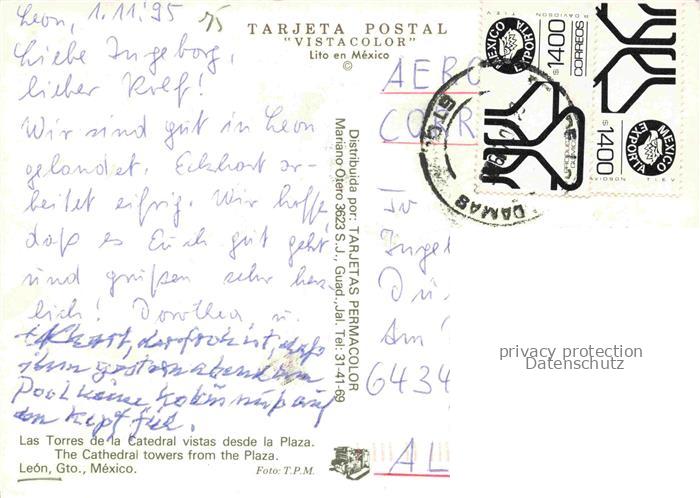 Leon, 1.11.'95
75
Liebe Ingeborg,
lieber Rolf!
Wir sind gut in Leon
gelandet. Eckhart ar-
beitet eifrig. Wir hoffe
daß es Euch gut geht
und grüßen sehr herz-
lich! Dorothea u.
Ekhart, der froh ist, daß
ihm gestern abend im
Pool keine Kokosnuß auf
den Kopf fiel.
Las Torres de la Catedral vistas desde la Plaza.
The Cathedral towers from the Plaza.
León, Gto., México.
Foto: T.P.M.
TARJETA POSTAL
"VISTACOLOR"
Lito en México
©
Distribuida por: TARJETAS PERMACOLOR
Mariano Otero 3623 S.J., Guad., Jal. Tel: 31-41-69
AERO
CORR
Inge
Dü
Am
6434
AL
MEXICO
EXPORTA
$1400
CORREOS
R. DAVIDSON
T.I.E.V.
MEXICO
EXPORTA
$1400
DAVIDSON
T.I.E.V.
DAMAS
GTO.
privacy protection
Datenschutz